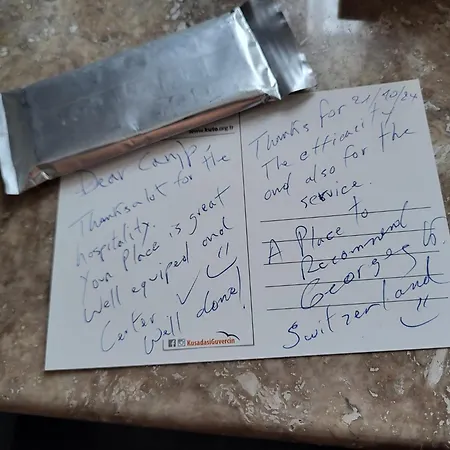 www.kuve.org.tr
Dear Can,
Thanks a lot for the
hospitality.
Your Place is great
Well equiped and
Center ✓
Well done!
KusadasiGuvercin
21/10/24
Thanks for
The efficacity
and also for the
service.
A Place to
Recommend
Georges
Switzerland